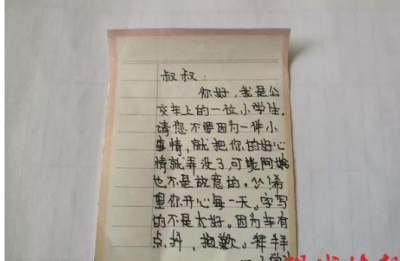 叔叔：
你好，我是公
交车上的一位小学生。
请您不要因为一件小
事情，就把你的好心
情就弄没了，可能阿姨
也不是故意的。
望你开心每一天。字写
的不是太好。因为车有
点抖，抱歉。拜拜